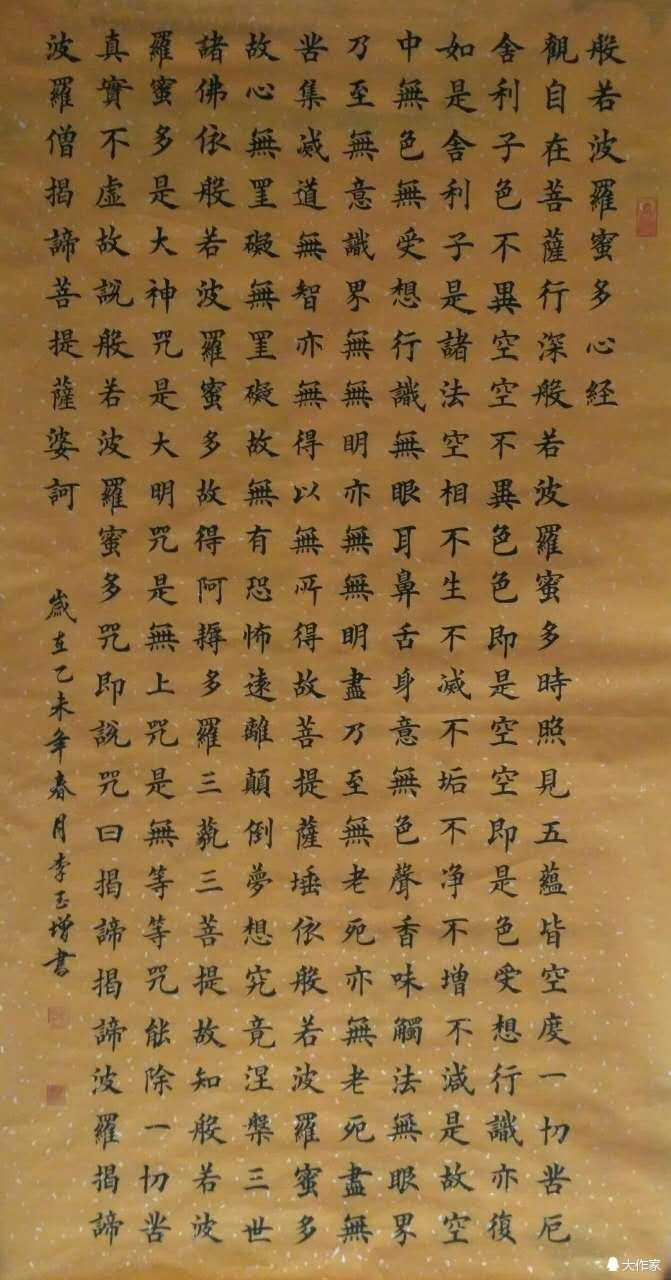 般若波羅蜜多心経
觀自在菩薩行深般若波羅蜜多時照見五蘊皆空度一切苦厄
舍利子色不異空空不異色色即是空空即是色受想行識亦復
如是舍利子是諸法空相不生不滅不垢不净不增不減是故空
中無色無受想行識無眼耳鼻舌身意無色聲香味觸法無眼界
乃至無意識界無無明亦無無明盡乃至無老死亦無老死盡無
苦集滅道無智亦無得以無所得故菩提薩埵依般若波羅蜜多
故心無罣礙無罣礙故無有恐怖遠離顛倒夢想究竟涅槃三世
諸佛依般若波羅蜜多故得阿耨多羅三藐三菩提故知般若波
羅蜜多是大神咒是大明咒是無上咒是無等等咒能除一切苦
真實不虛故說般若波羅蜜多咒即說咒曰揭諦揭諦波羅揭諦
波羅僧揭諦菩提薩婆訶
歲在乙未年春月李玉增書
大作家